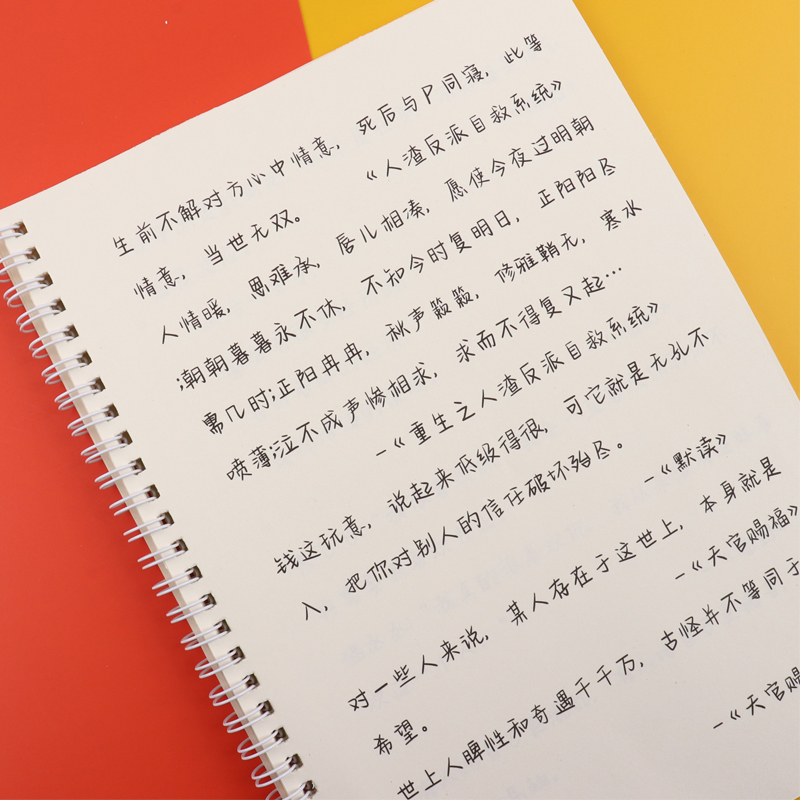 生前不解对方心中情意，死后与P同寝，此等
情意，当世无双。 《人渣反派自救系统》
人情暖，恩难承，唇儿相凑，愿使今夜过明朝
;朝朝暮暮永不休，不知今时复明日，正阳阳尽
需几时;正阳冉冉，秋声簌簌，修雅鞘无，寒水
喷薄;泣不成声惨相求，求而不得复又起…
-《重生之人渣反派自救系统》
钱这玩意，说起来低级得很，可它就是无孔不
入，把你对别人的信任破坏殆尽。 -《默读》
对一些人来说，某人存在于这世上，本身就是
希望。 -《天官赐福》
世上人脾性和奇遇千千万，古怪并不等同于
-《天官赐